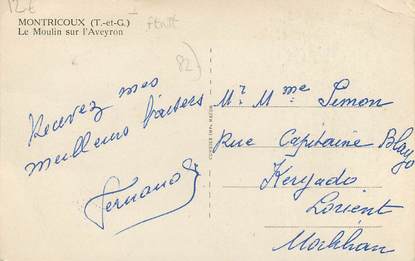 12€
MONTRICOUX (T.-et-G.)
Le Moulin sur l'Aveyron
82)
Recevez mes
meilleurs baisers
Fernand
Mr. Mme Simon
Rue Capitaine Blayo
Keryado
Lorient
Morbihan